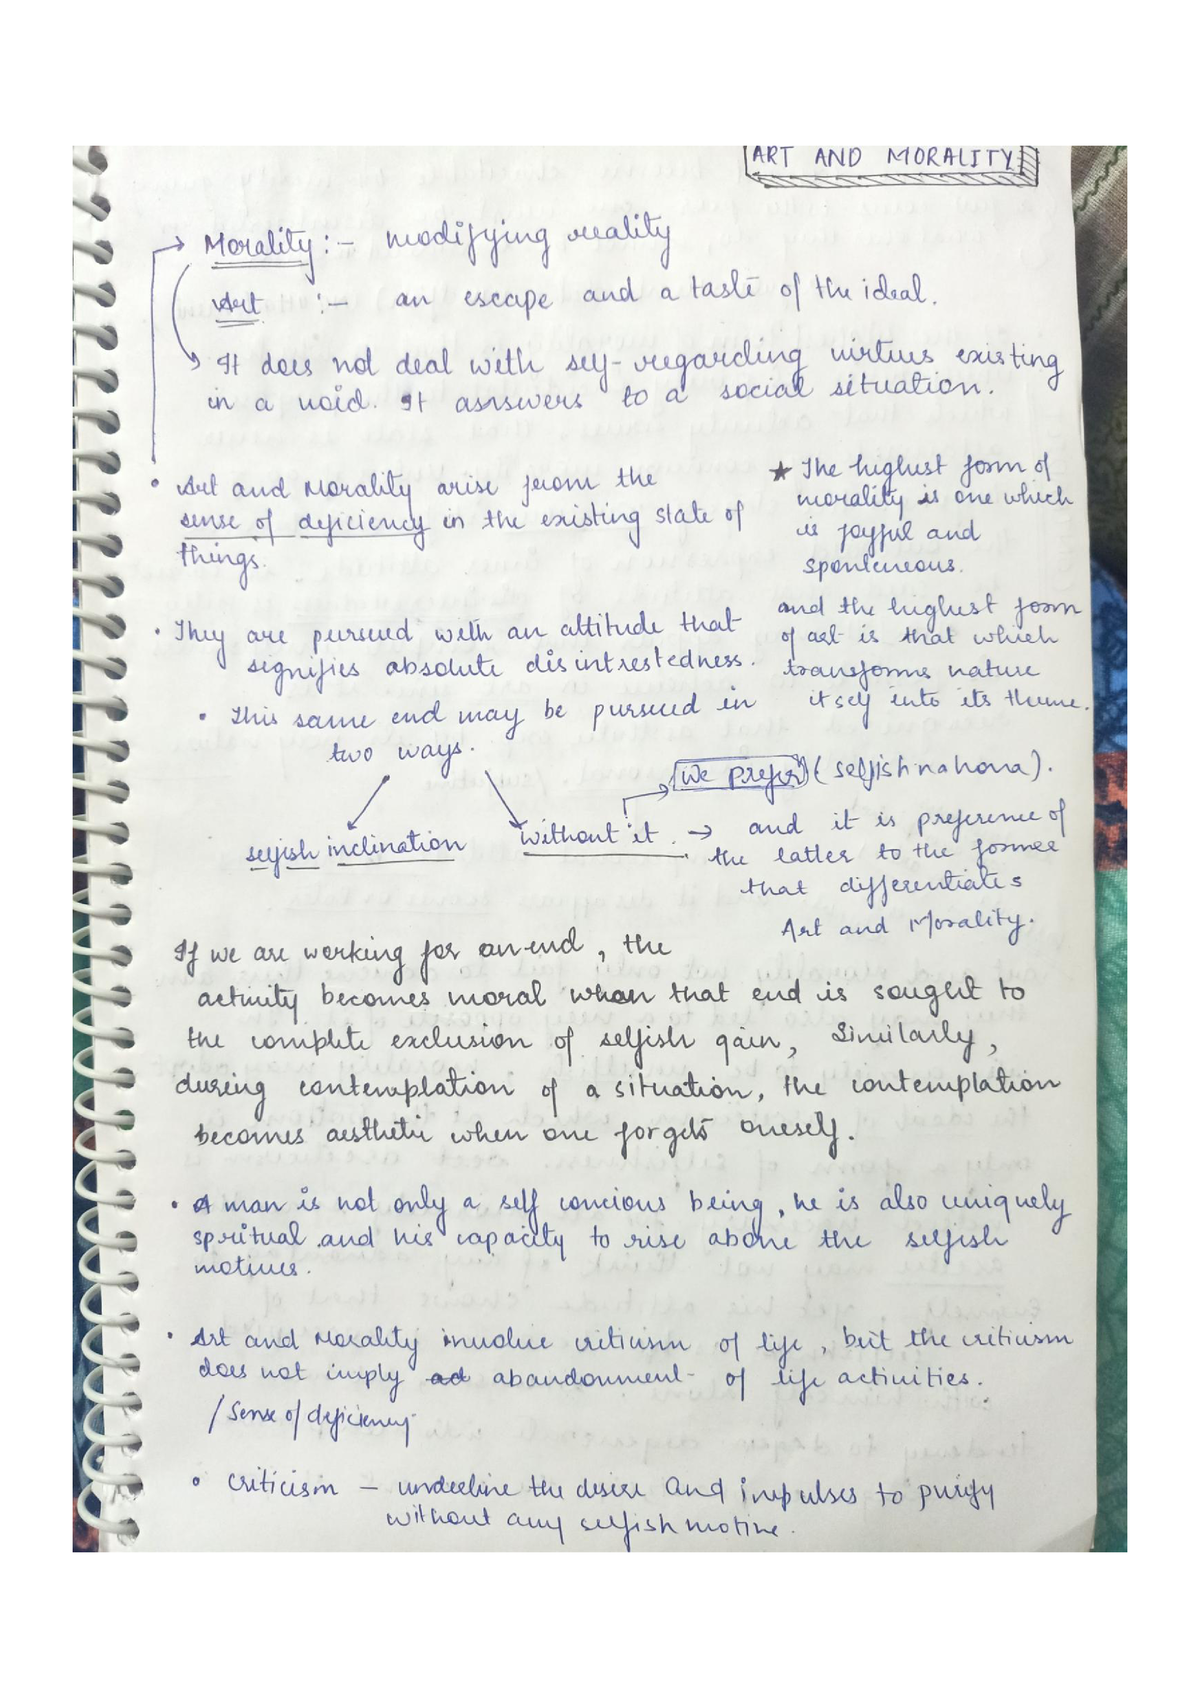 ART AND MORALITY
Morality :- modifying reality
Art :- an escape and a taste of the ideal.
It does not deal with self-regarding virtues existing
in a void. It answers to a social situation.
• Art and Morality arise from the
sense of deficiency in the existing state of
things.
★ The highest form of
morality is one which
is joyful and
sponteneous.
and the highest form
of art is that which
transforms nature
itself into its theme.
• They are pursued with an attitude that
signifies absolute disintrestedness.
• This same end may be pursued in
two ways.
we prefer (selfish na hona).
selfish inclination
without it. → and it is preference of
the latter to the former
that differentiates
Art and Morality.
If we are working for an end, the
activity becomes moral when that end is sought to
the complete exclusion of selfish gain, Similarly,
during contemplation of a situation, the contemplation
becomes aesthetic when one forgets oneself.
• A man is not only a self concious being, he is also uniquely
spritual and his capacity to rise above the selfish
motives.
• Art and Morality involve criticism of life, but the criticism
does not imply abandonment of life activities.
/ Sense of deficiency
• Criticism – underline the desire and impulses to purify
without any selfish motive.